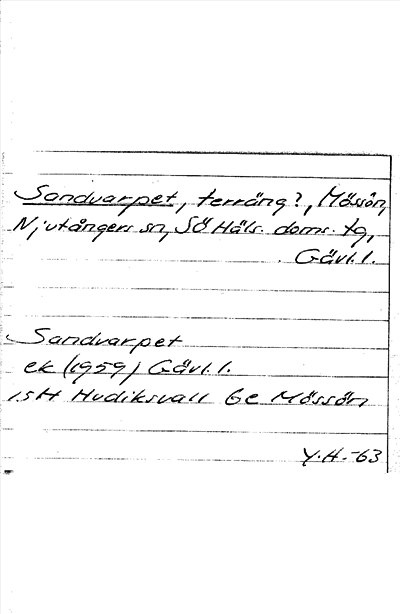 Sandvarpet, terräng?, Mössön,
Njutångers sn, SÖ Häls. doms. tg,
Gävl. l.
Sandvarpet
ek (1959) Gävl. l.
14H Hudiksvall 6e Mössön
Y.H.-63